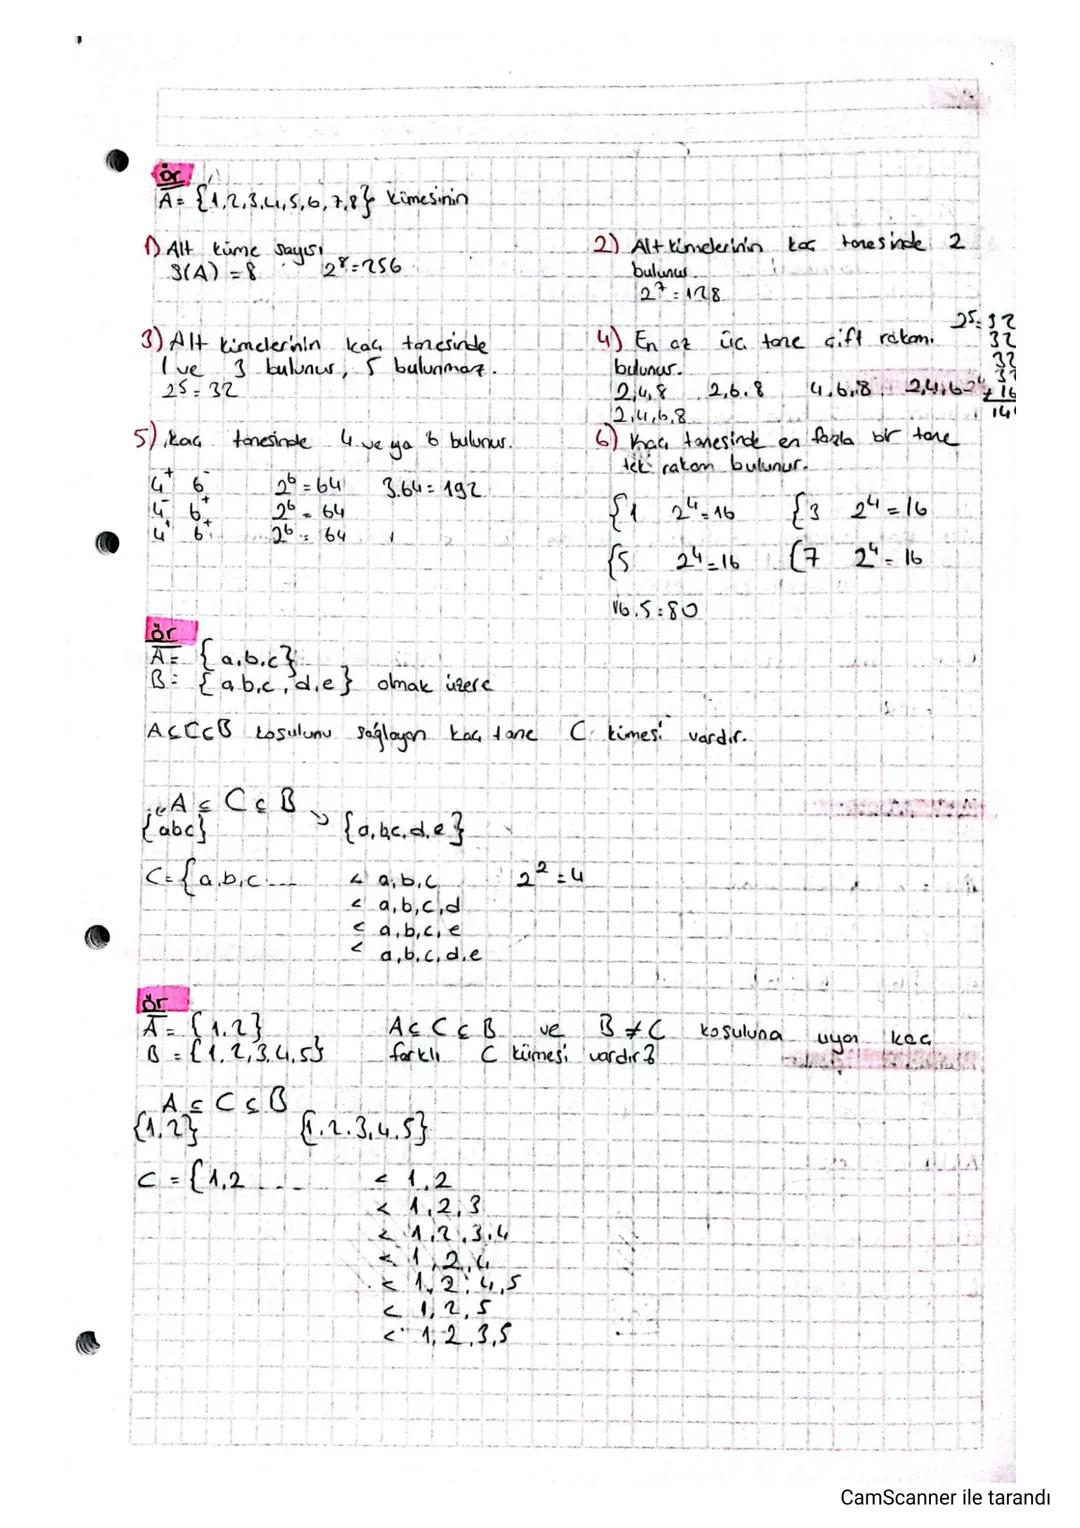 ör
A = {1,2,3,4,5,6,7,8} kümesinin
1) Alt küme sayısı
S(A) = 8 2⁸=256
2) Alt kümelerinin kaç tanesinde 2
bulunur.
2⁷=128
3) Alt kümelerinin kaç tanesinde
1 ve 3 bulunur, 5 bulunmaz.
2⁵=32
4) En az üç tane çift rakam
bulunur.
2,4,8 2,6,8 4,6,8 2,4,6 2⁴
2,4,6,8
2⁵=32
32
32
+ 16
5) kaç tanesinde 4 veya 6 bulunur.
4⁺ 6⁻ 2⁶=64 3.64=192
4⁻ 6⁺ 2⁶=64
4⁺ 6⁺ 2⁶=64
6) Kaç tanesinde en fazla bir tane
tek rakam bulunur.
{1 2⁴=16 {3 2⁴=16
{5 2⁴=16 {7 2⁴=16
16.5=80
ör
A = {a,b,c}
B = {a,b,c,d,e} olmak üzere
A⊆C⊆B koşulunu sağlayan kaç tane C kümesi vardır.
A ⊆ C ⊆ B
{abc} {a,b,c,d,e}
C={a,b,c.... < a,b,c 2²=4
< a,b,c,d
< a,b,c,e
< a,b,c,d,e
ör
A = {1,2} A⊆C⊆B ve B≠C koşuluna uyan kaç
B = {1,2,3,4,5} farklı C kümesi vardır?
A ⊆ C ⊆ B
{1,2} {1,2,3,4,5}
C = {1,2 ... < 1,2
< 1,2,3
< 1,2,3,4
< 1,2,4
< 1,2,4,5
< 1,2,5
< 1,2,3,5
CamScanner ile tarandı